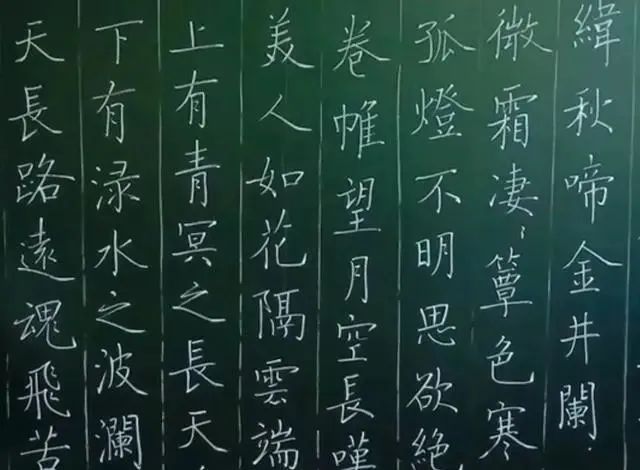 緯秋啼金井闌.
微霜凄〻簟色寒
孤燈不明思欲絶
卷帷望月空長嘆
美人如花隔雲端
上有青冥之長天.
下有渌水之波瀾
天長路遠魂飛苦